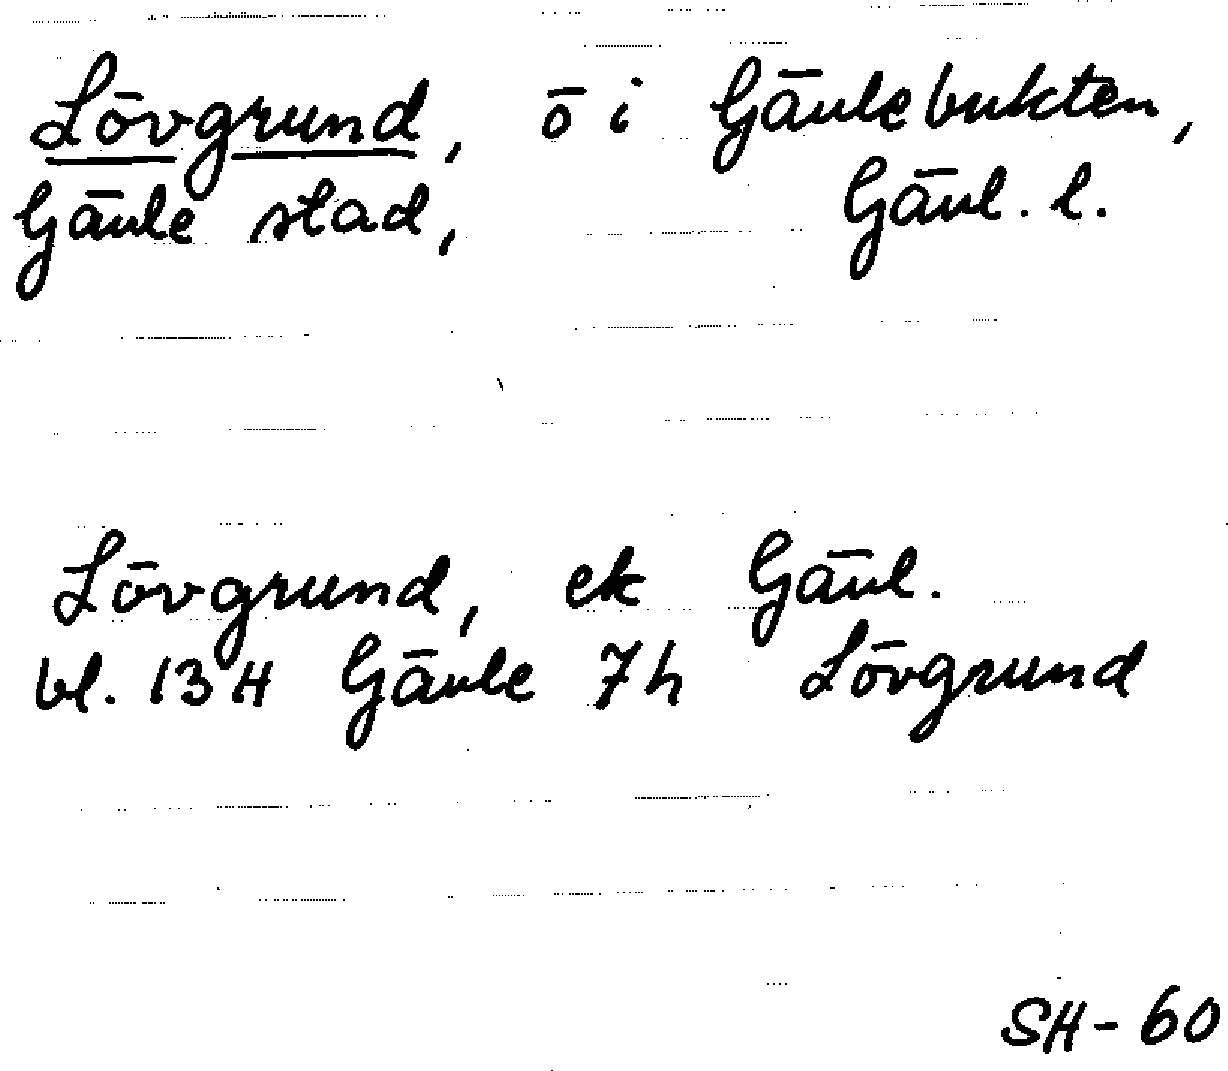 Lövgrund, ö i Gävlebukten,
Gävle stad, Gävl. l.
Lövgrund, ek Gävl.
bl. 13H Gävle 7h Lövgrund
SH-60